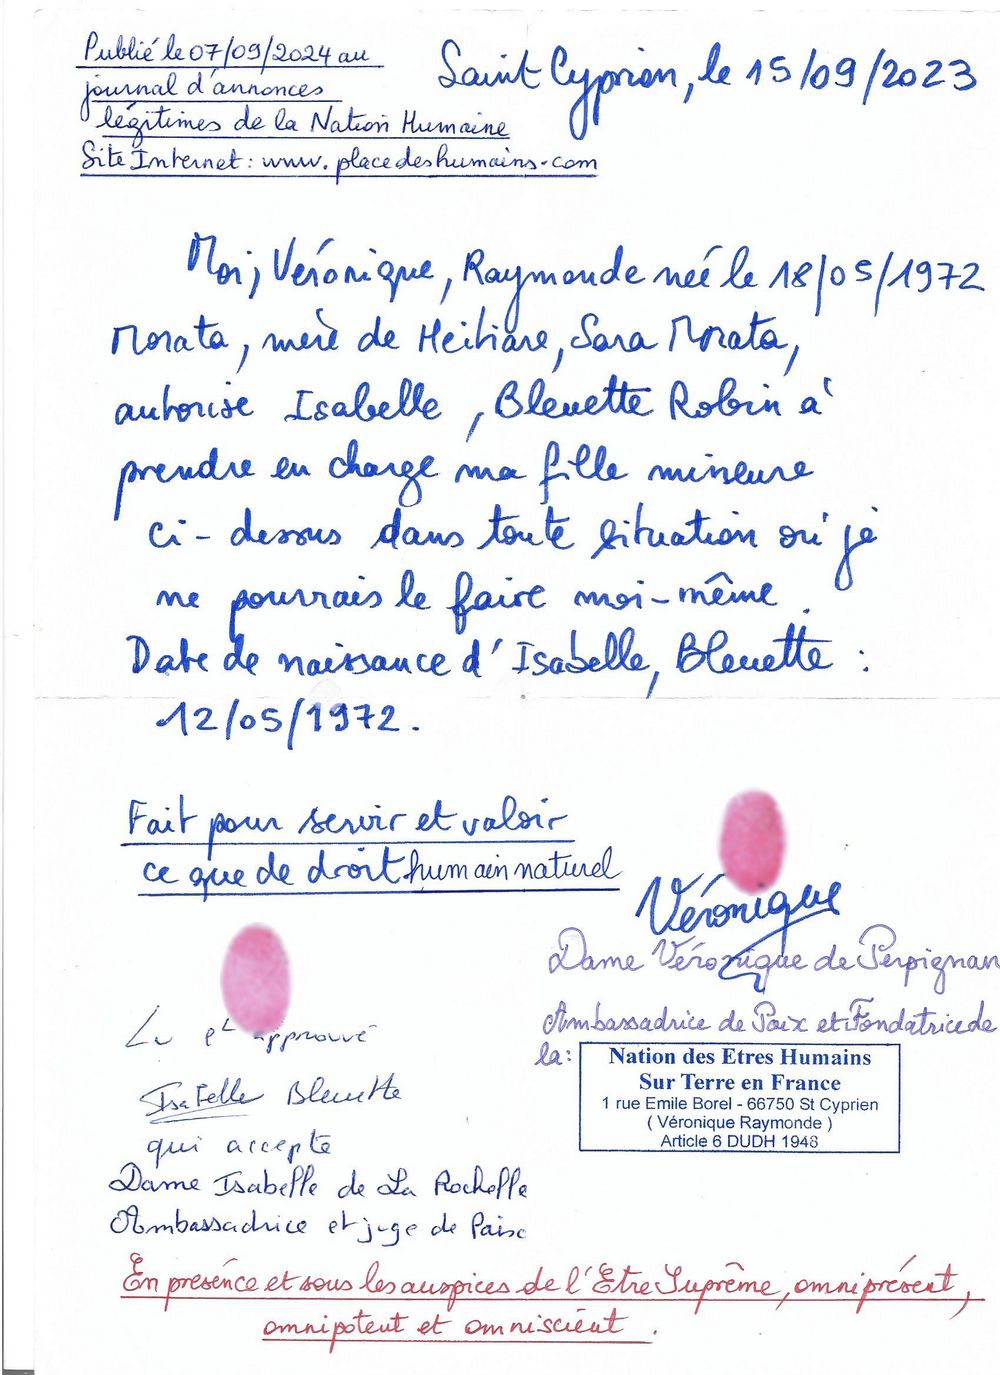 Publié le 07/09/2024 au
journal d'annonces
légitimes de la Nation Humaine
Site Internet : www.placedeshumains.com
Saint Cyprien, le 15/09/2023
Moi, Véronique, Raymonde née le 18/05/1972
Morata, mère de Heitiare, Sara Morata,
autorise Isabelle, Bleuette Robin à
prendre en charge ma fille mineure
ci-dessus dans toute situation où je
ne pourrais le faire moi-même.
Date de naissance d'Isabelle, Bleuette :
12/05/1972.
Fait pour servir et valoir
ce que de droit humain naturel
Véronique
Dame Véronique de Perpignan
Ambassadrice de Paix et Fondatrice de
la :
Nation des Etres Humains
Sur Terre en France
1 rue Emile Borel - 66750 St Cyprien
( Véronique Raymonde )
Article 6 DUDH 1948
Lu et approuvé
Isabelle Bleuette
qui accepte
Dame Isabelle de La Rochelle
Ambassadrice et juge de Paix
En présence et sous les auspices de l'Etre Suprême, omniprésent,
omnipotent et omniscient.